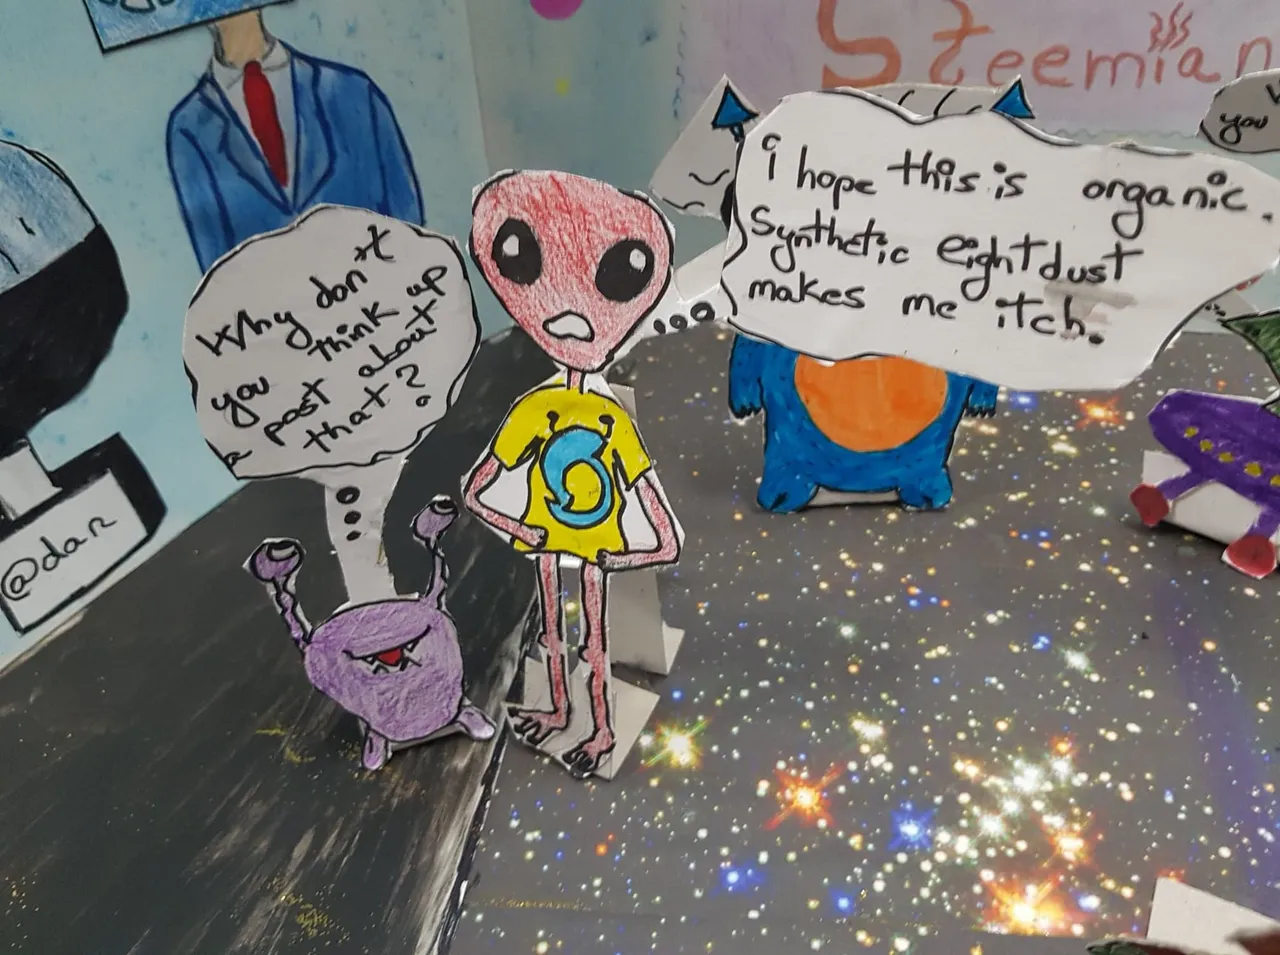 Steemian
i hope this is organic.
Synthetic eightdust
makes me itch.
you
Why don't
you think up
a post about
that?
@dan